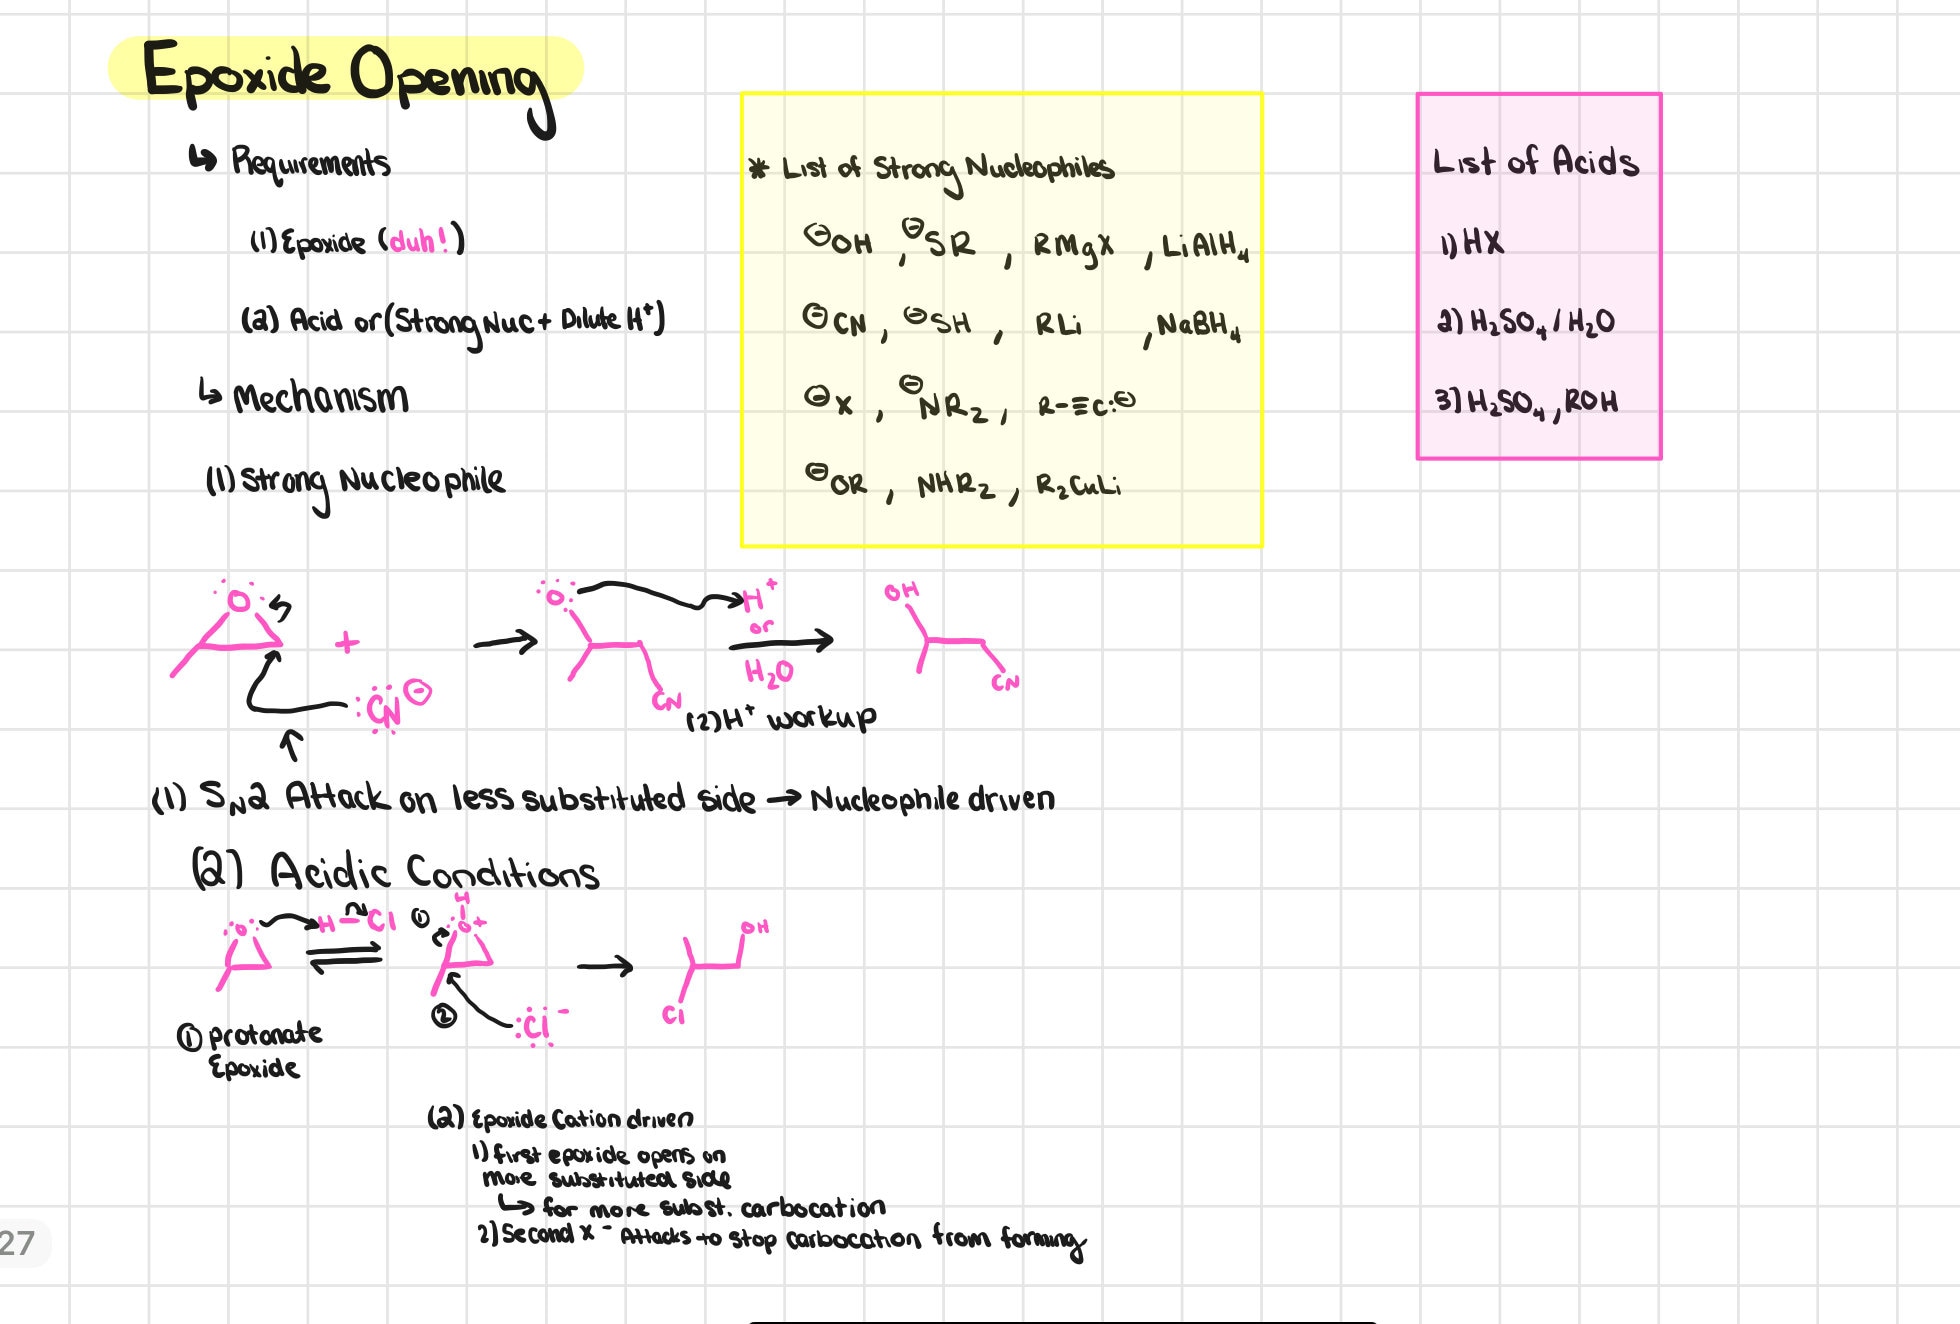 Epoxide Opening
↳ Requirements
(1) Epoxide (duh!)
(2) Acid or (Strong Nuc + Dilute H⁺)
↳ Mechanism
(1) Strong Nucleophile
* List of Strong Nucleophiles
⊖OH , ⊖SR , RMgX , LiAlH₄
⊖CN , ⊖SH , RLi , NaBH₄
⊖X , ⊖NR₂ , R-≡C:⊖
⊖OR , NHR₂ , R₂CuLi
List of Acids
1) HX
2) H₂SO₄ / H₂O
3) H₂SO₄ , ROH
O
+
:CN⊖
→
O
CN
H⁺
or
H₂O
(2) H⁺ workup
OH
CN
(1) SN2 Attack on less substituted side → Nucleophile driven
(2) Acidic Conditions
O
H-Cl
①
H
O+
②
:Cl⁻
→
OH
Cl
① protonate
Epoxide
(2) Epoxide Cation driven
1) first epoxide opens on
more substituted side
↳ for more subst. carbocation
2) Second X⁻ Attacks to stop carbocation from forming
27